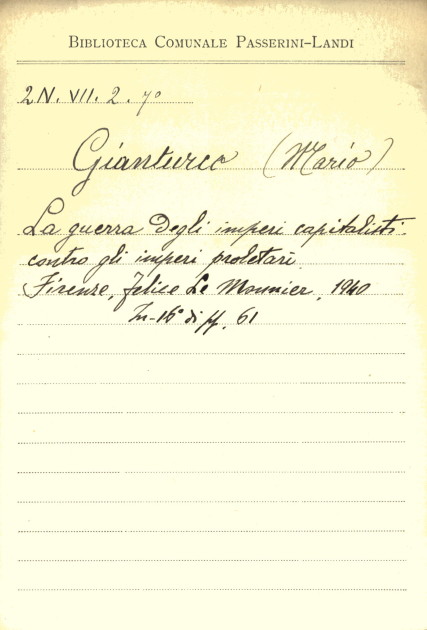 BIBLIOTECA COMUNALE PASSERINI-LANDI
2N. VII. 2. 7°
Gianturco (Mario)
La guerra degli imperi capitalisti
contro gli imperi proletari
Firenze, Felice Le Monnier, 1940
In-16° di pp. 61